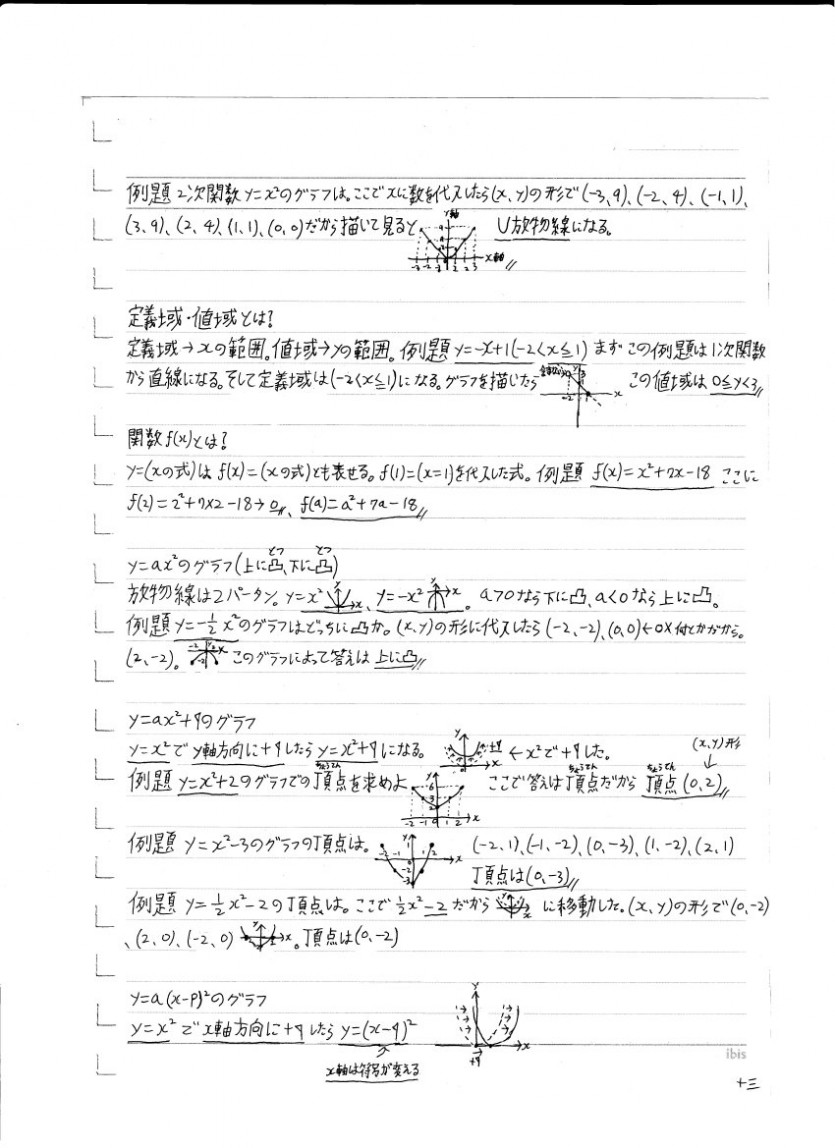 例題 2次関数 y=x²のグラフは。ここでxに数を代入したら(x, y)の形で(-3,9)、(-2, 4)、(-1,1)、
(3,9)、(2,4)、(1,1)、(0,0)だから描いて見ると y軸 x軸 U放物線になる。
定義域・値域とは?
定義域→xの範囲。値域→yの範囲。例題 y=-x+1(-2<x≦1) まずこの例題は1次関数
から直線になる。そして定義域は(-2<x≦1)になる。グラフを描いたら この値域は 0≦y<3
関数f(x)とは?
y=(xの式)は f(x)=(xの式)とも表せる。f(1)=(x=1)を代入した式。例題 f(x)=x²+7x-18 ここに
f(2)=2²+7×2-18→0、f(a)=a²+7a-18
y=ax²のグラフ(上に凸、下に凸)
放物線は2パターン。y=x²、y=-x²。a>0なら下に凸、a<0なら上に凸。
例題 y=-½x²のグラフはどっちに凸か。(x,y)の形に代入したら(-2,-2)、(0,0)←0×何とかだから。
(2,-2)。このグラフによって答えは上に凸
y=ax²+qのグラフ
y=x²でy軸方向に+qしたらy=x²+qになる。←x²で+qした。
(x,y)形
例題 y=x²+2のグラフでの頂点を求めよ ここで答えは頂点だから 頂点(0,2)
例題 y=x²-3のグラフの頂点は。(-2,1)、(-1,-2)、(0,-3)、(1,-2)、(2,1)
頂点は(0,-3)
例題 y=½x²-2の頂点は。ここで½x²-2だから に移動した。(x,y)の形で(0,-2)
、(2,0)、(-2,0) 。頂点は(0,-2)
y=a(x-p)²のグラフ
y=x²でx軸方向に+qしたらy=(x-q)²
+q
x軸は符号が変える
ibis
十三